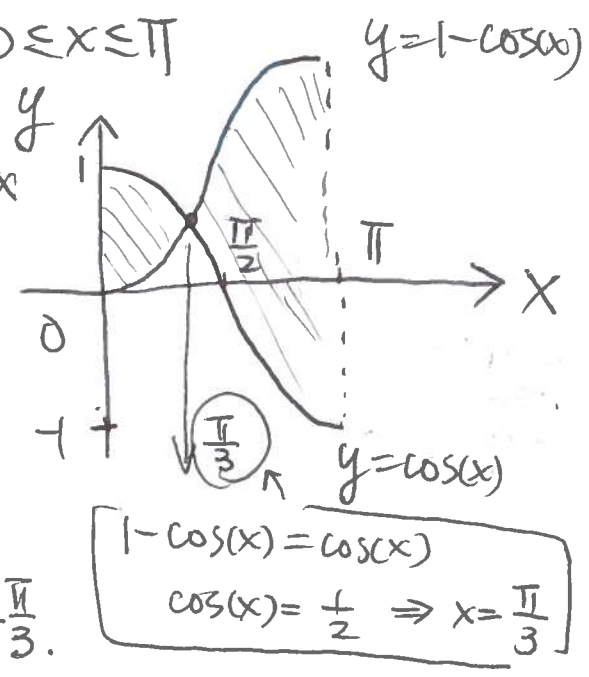 0≤x≤π
y=1-cos(x)
y
x
1
π/2
π
x
0
-1
π/3
y=cos(x)
1-cos(x)=cos(x)
cos(x)=1/2 ⇒ x=π/3
π/3.